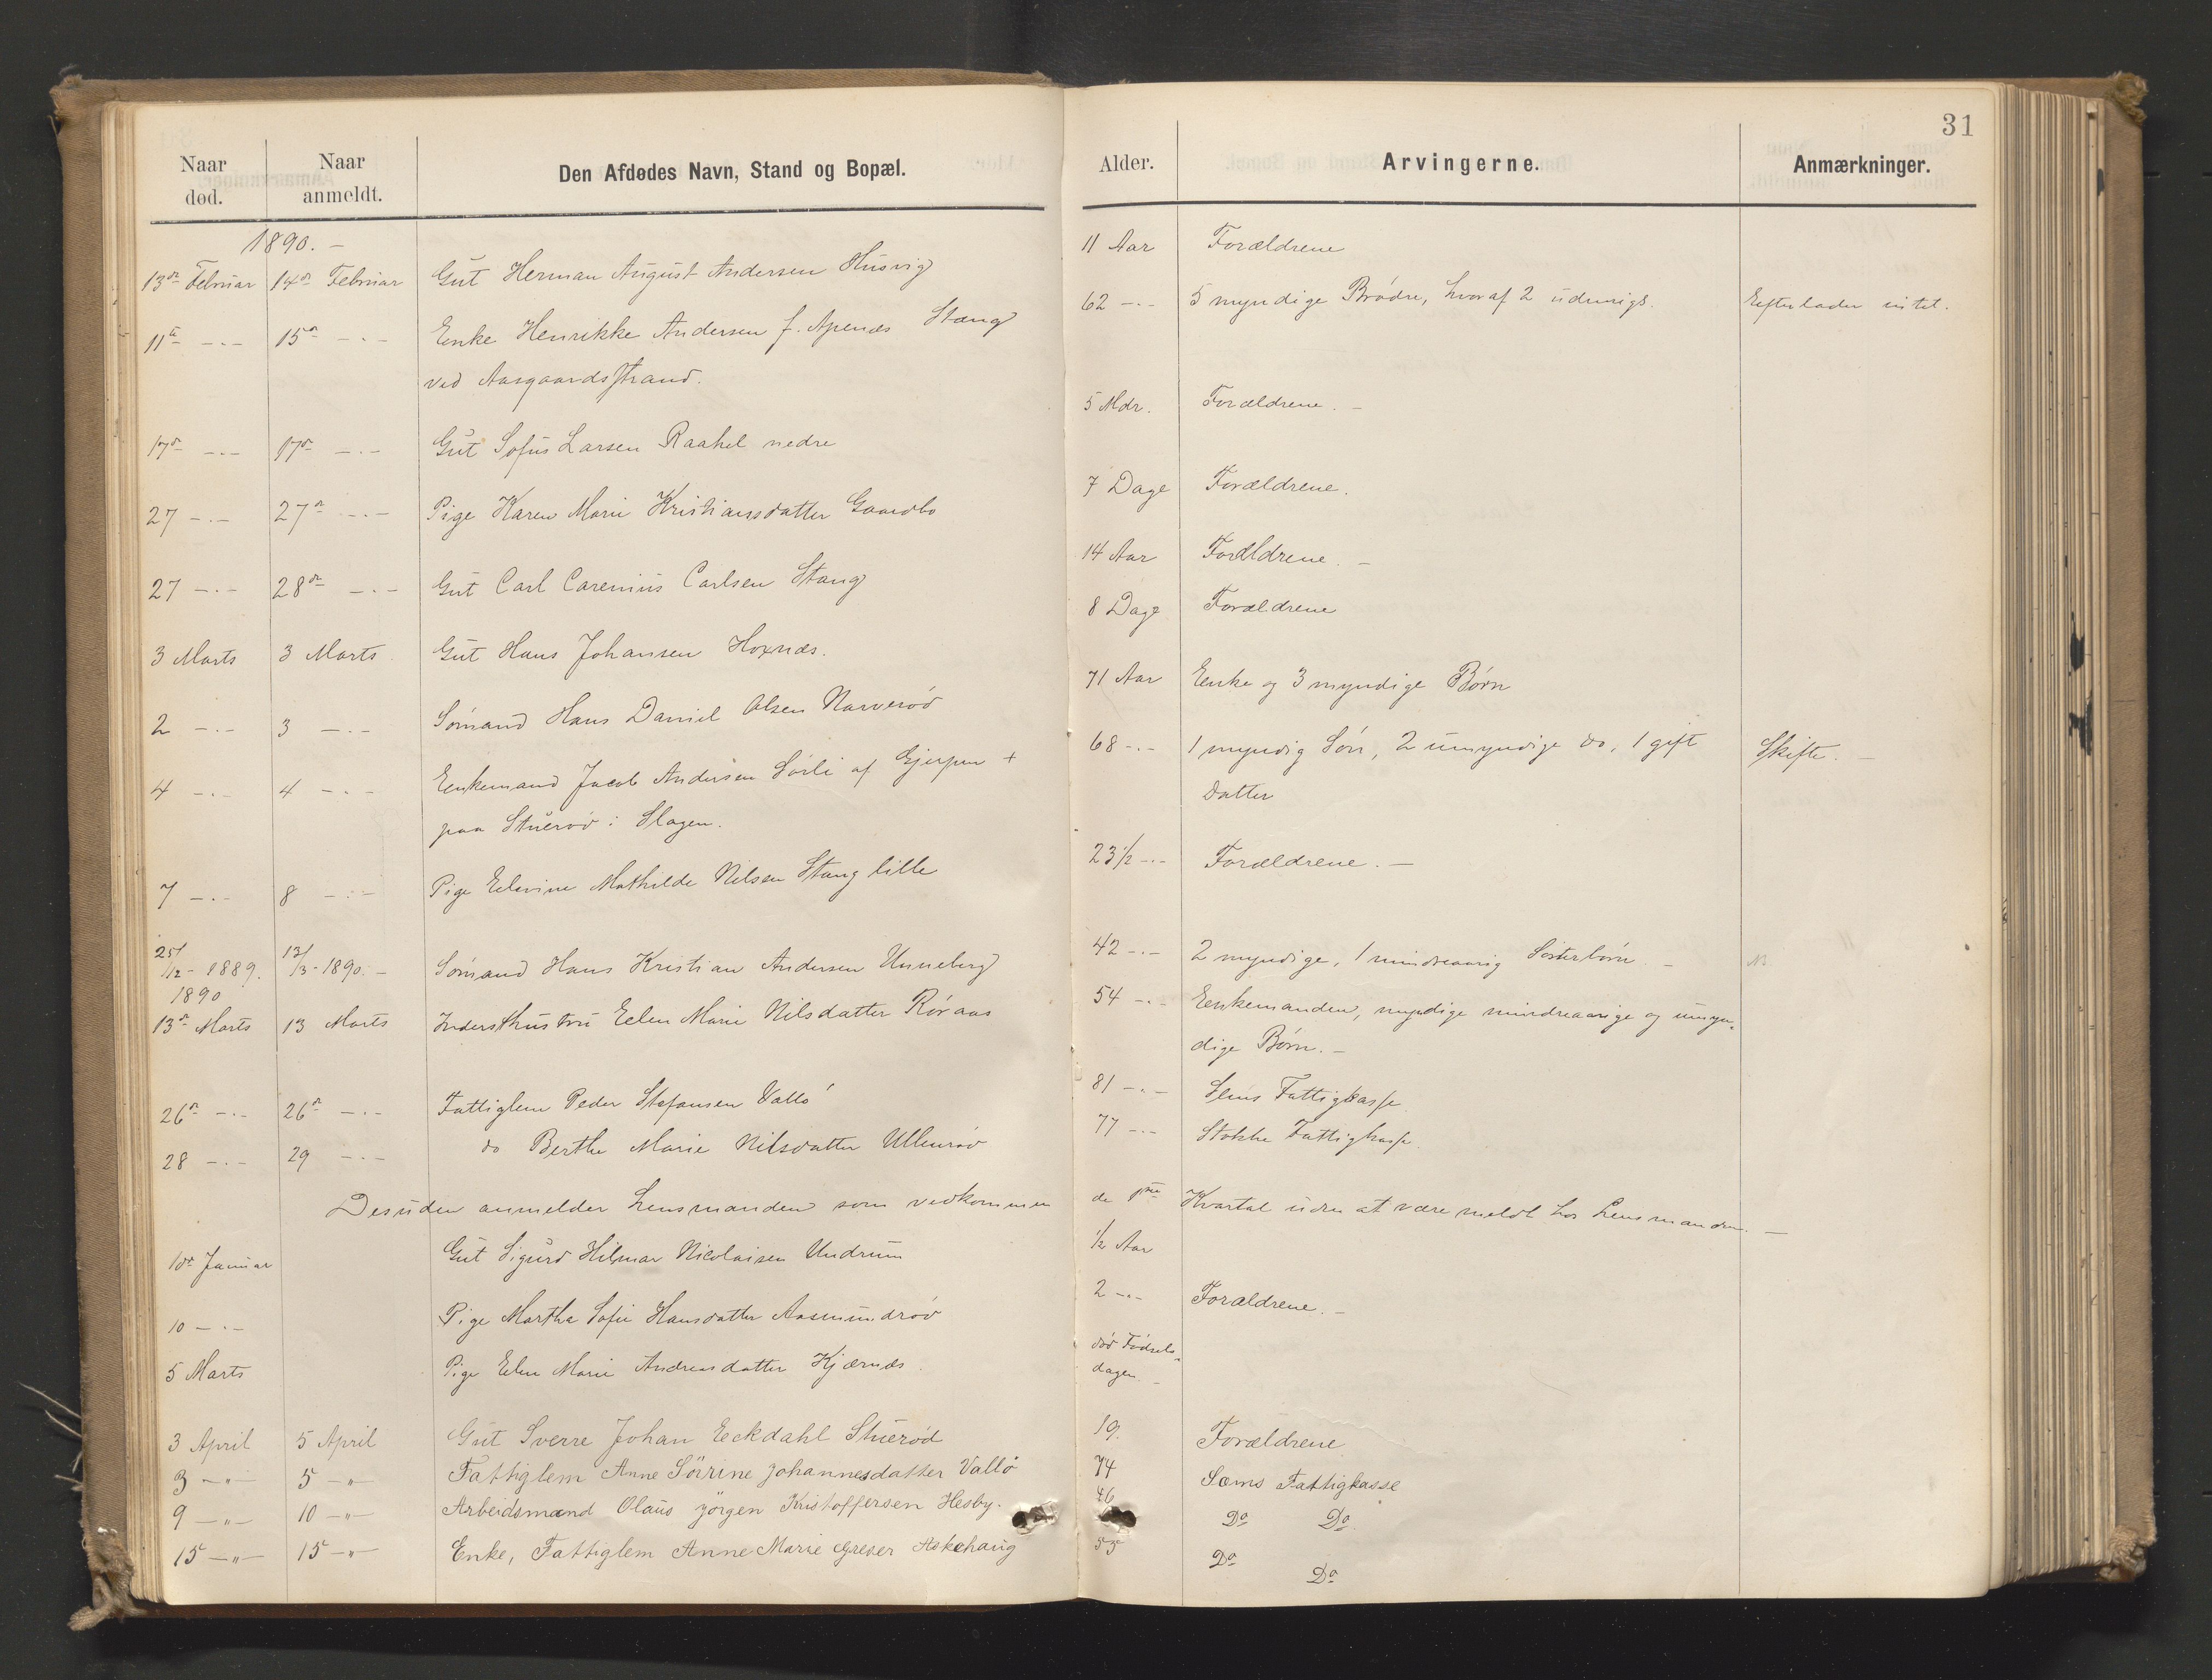 31
Naar død. Naar anmeldt. Den Afdødes Navn, Stand og Bopæl. Alder. Arvingerne. Anmærkninger.
1890. –
13de Februar 14de Februar Gut Herman August Andersen Husvig 11 Aar Forældrene
11te –.– 15de –.– Enke Henrikke Andersen f. Apenæs Stang 62 –.– 5 myndige Brødre, hvoraf 2 udenrigs. Efterlader intet.
ved Aasgaardsstrand.
17de –.– 17de –.– Gut Sofus Larsen Raahel nedre 5 Mdr. Forældrene. –
27 –.– 27de –.– Pige Karen Marie Kristiansdatter Gaardbo 7 Dage Forældrene.
27 –.– 28de –.– Gut Carl Carenius Carlsen Stang 14 Aar Forældrene. –
3 Marts 3 Marts Gut Hans Johansen Hoxnæs. 8 Dage Forældrene
2 –.– 3 –.– Sømand Hans Daniel Olsen Narverød 71 Aar Enke og 3 myndige Børn
4 –.– 4 –.– Enkemand Jacob Andersen Sørli af Gjerpen + 68 –.– 1 myndig Søn, 2 umyndige do, 1 gift Skifte. –
paa Stuerød i Slagen. Datter
7 –.– 8 –.– Pige Edevine Mathilde Nilsen Stang lille 23 1/2 –.– Forældrene. –
25/12 - 1889. 13/3 - 1890. – Sømand Hans Kristian Andersen Unneberg 42 –.– 2 myndige, 1 mindreaarig Søsterbørn. –
1890
13de Marts 13 Marts Indersthustru Elen Marie Nilsdatter Røraas 54 –.– Enkemanden, myndige mindreaarige og umyn-
dige Børn. –
26de –.– 26de –.– Fattiglem Peder Stefansen Valló 81 –.– Sems Fattigkasse
28 –.– 29 –.– do Berthe Marie Nilsdatter Ullenrød 77 –.– Stokke Fattigkasse.
Desuden anmelder Lensmanden som vedkommende 1ste Kvartal uden at være meldt hos Lensmanden. –
10de Januar Gut Sigurd Hilmar Nicolaisen Undrum 1/2 Aar
10 –.– Pige Martha Sofie Hansdatter Aasmundrød 2 –.– Forældrene. –
5 Marts Pige Elen Marie Andreasdatter Kjærnæs. død Fødsels-
dagen. –
3 April 5 April Gut Sverre Johan Eckdahl Stuerød 19. Forældrene
3 –"– 5 –"– Fattiglem Anne Sørine Johannesdatter Vallø 74 Sems Fattigkasse
9 –"– 10 –"– Arbeidsmand Olaus Jørgen Kristoffersen Hesby. 46 Do Do
15 –"– 15 –"– Enke, Fattiglem Anne Marie Greger Askehaug 55 Do Do